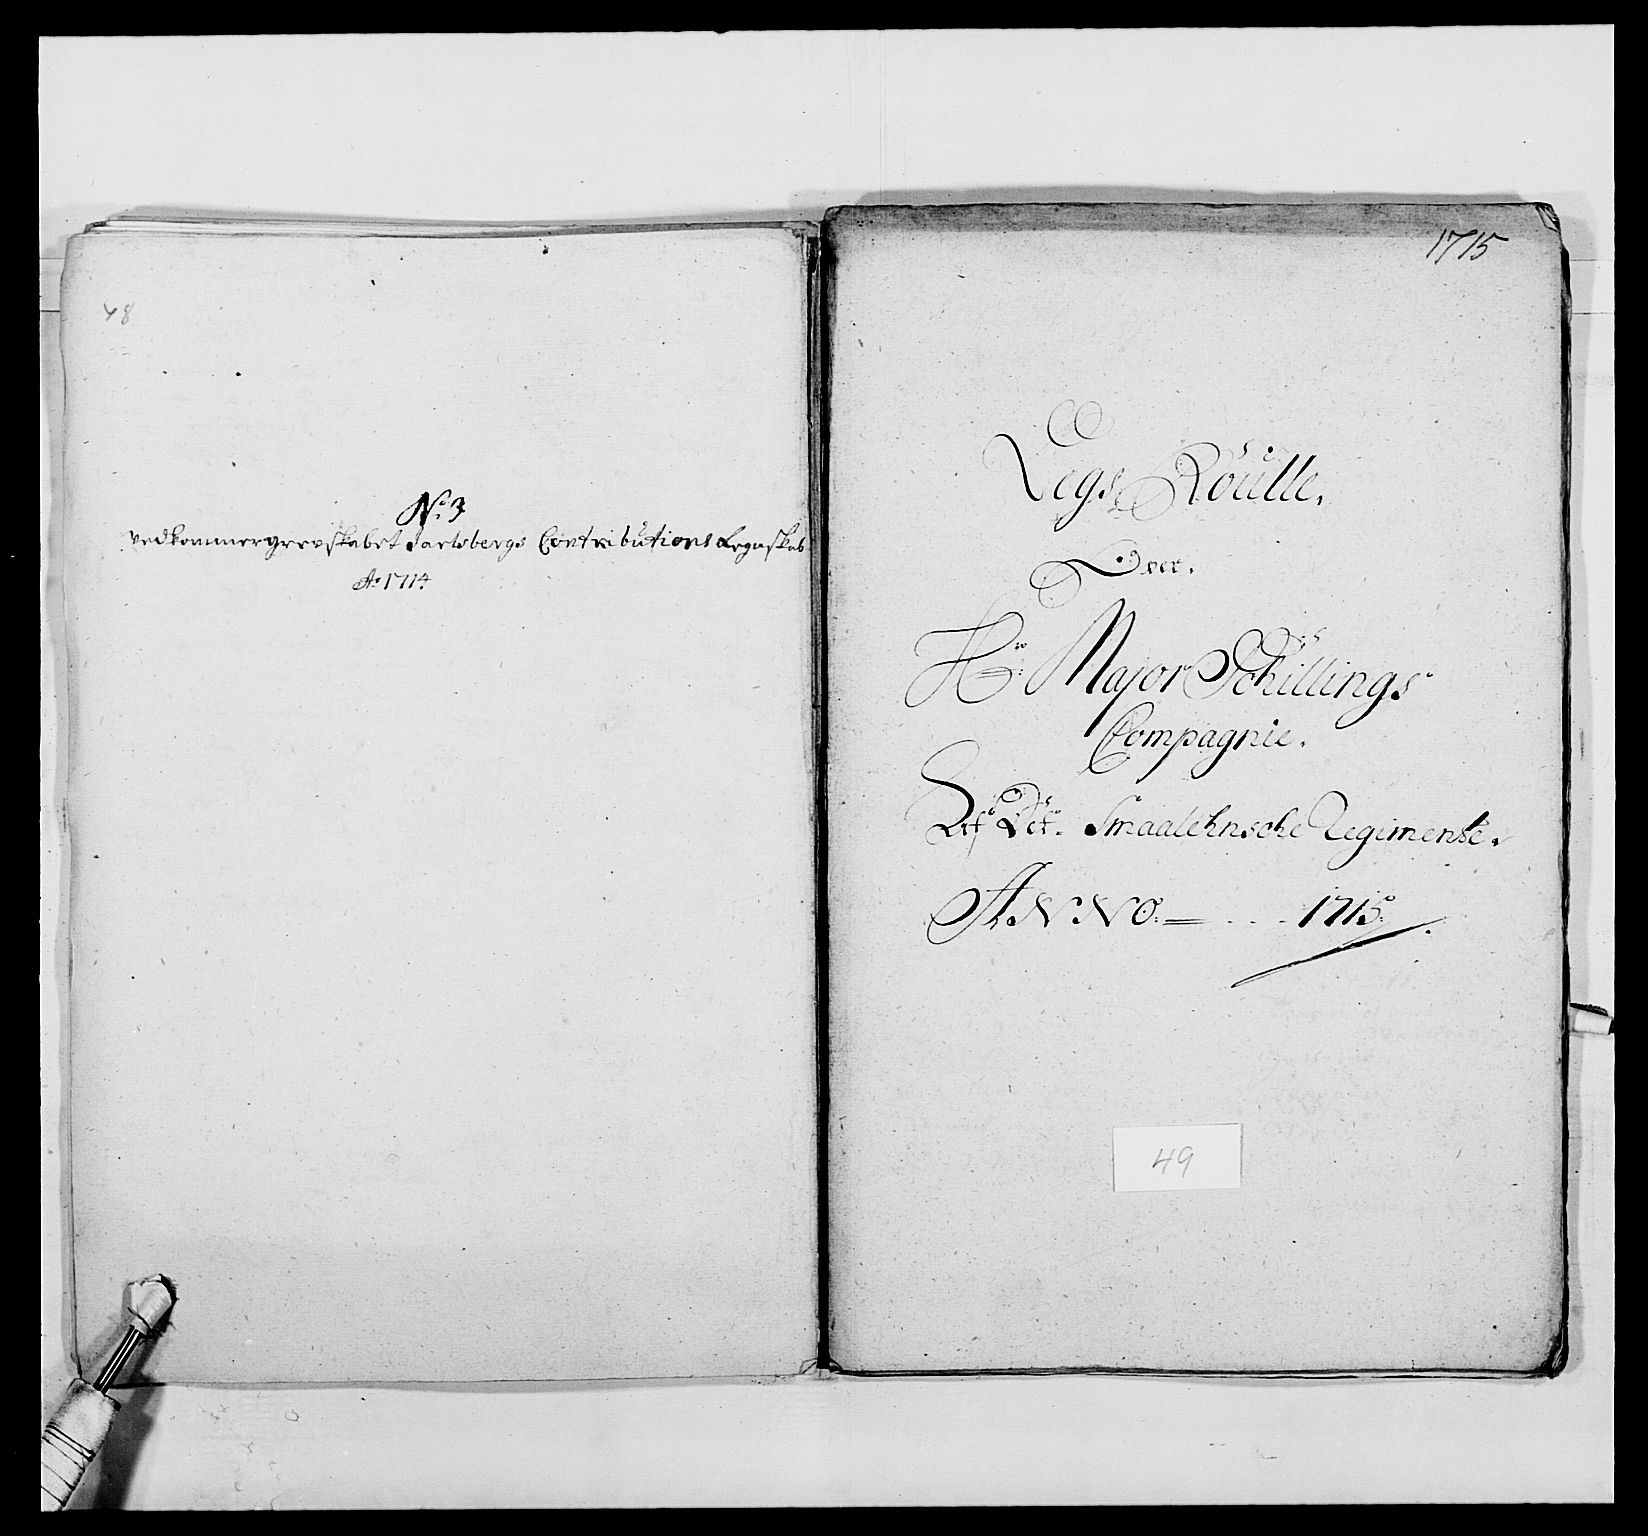 48
No 3
vedkommer grevskabet Jarlsbergs Contributions Regnskab
Ao 1714
1715
Legs Roülle.
Over.
Hr Major Schillings
Compagnie.
Af Det. Smaalehnsche Regimente.
ANNO. 1715.
49